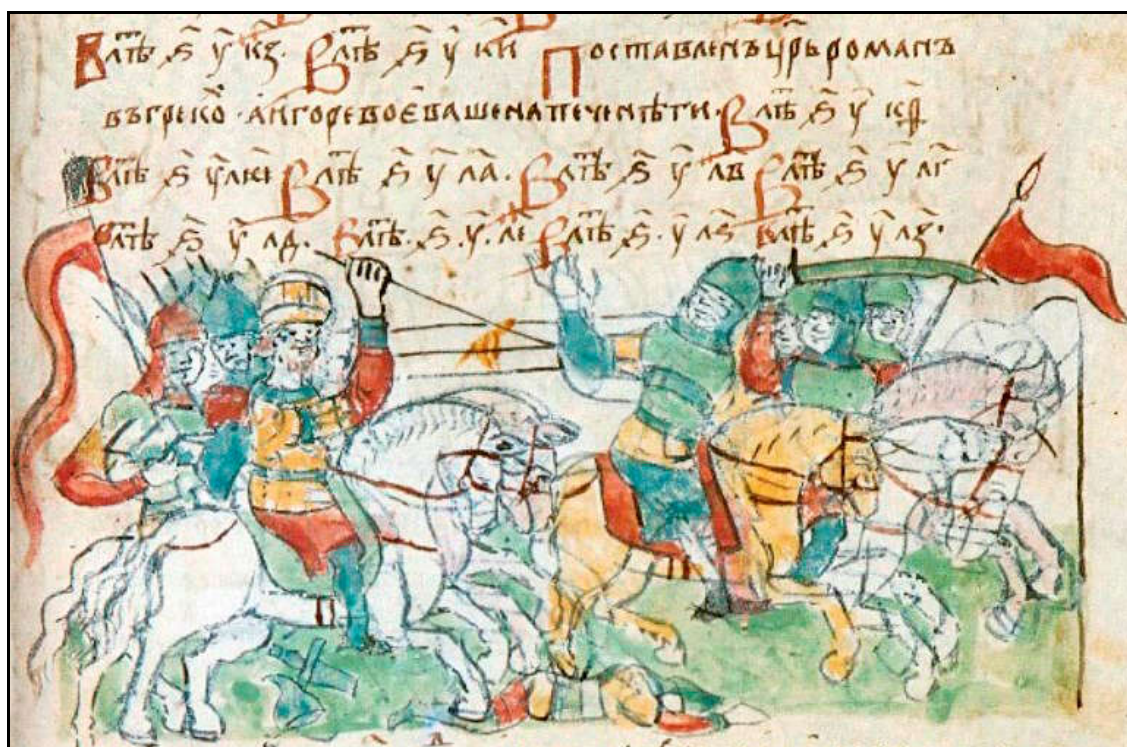 В лѣⷮ ҂ѕ҃ у҃ кз. В лѣⷮ ҂ѕ҃ у҃ ки Поставленъ цр҃ь романъ
въ греко · а игоре воєваше на печенѣги. В лѣⷮ ҂ѕ҃ у҃
В лѣⷮ ҂ѕ҃ В лѣⷮ ҂ѕ҃ у҃ ла. В лѣⷮ ҂ѕ҃ у҃ лв В лѣⷮ ҂ѕ҃ у҃ лг
В лѣⷮ ҂ѕ҃ у҃ лд. В лѣⷮ. ҂ѕ҃. у҃. ле В лѣⷮ ҂ѕ҃. у҃ лѕ В лѣⷮ ҂ѕ҃ у҃ лз.